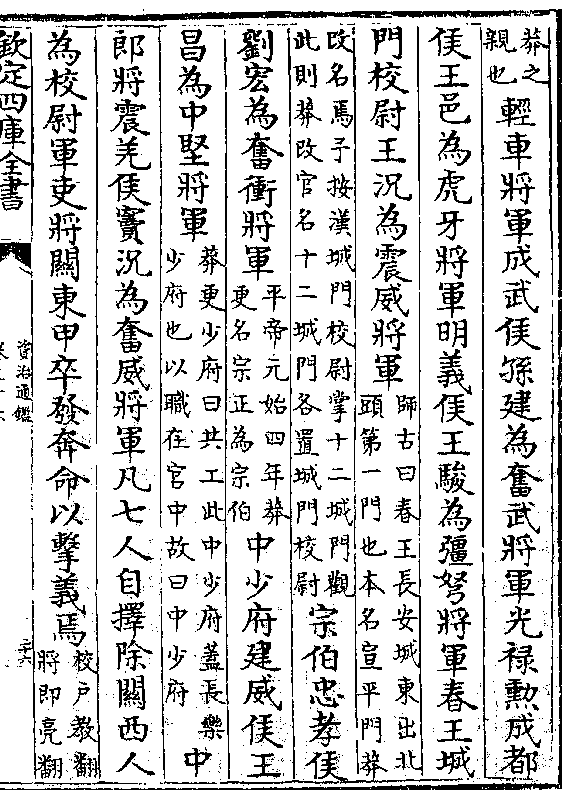 莽之親也輕車將軍成武侯孫建為奮武將軍光祿勲成都
侯王邑為虎牙將軍明義侯王駿為彊弩將軍春王城
門校尉王况為震威將軍師古曰春王長安城東出北頭第一門也本名宣平門莽
改名焉予按漢城門校尉掌十二城門觀此則莽改官名十二城門各置城門校尉宗伯忠孝侯
劉宏為奮衝將軍平帝元始四年莽更名宗正為宗伯中少府建威侯王
昌為中堅將軍莽更少府曰共工此中少府蓋長樂少府也以職在宫中故曰中少府中
郎將震羌侯竇况為奮威將軍凡七人自擇除關西人
為校尉軍吏將關東甲卒發奔命以擊義焉校户教翻將即亮翻
欽定四庫全書
資治通鑑